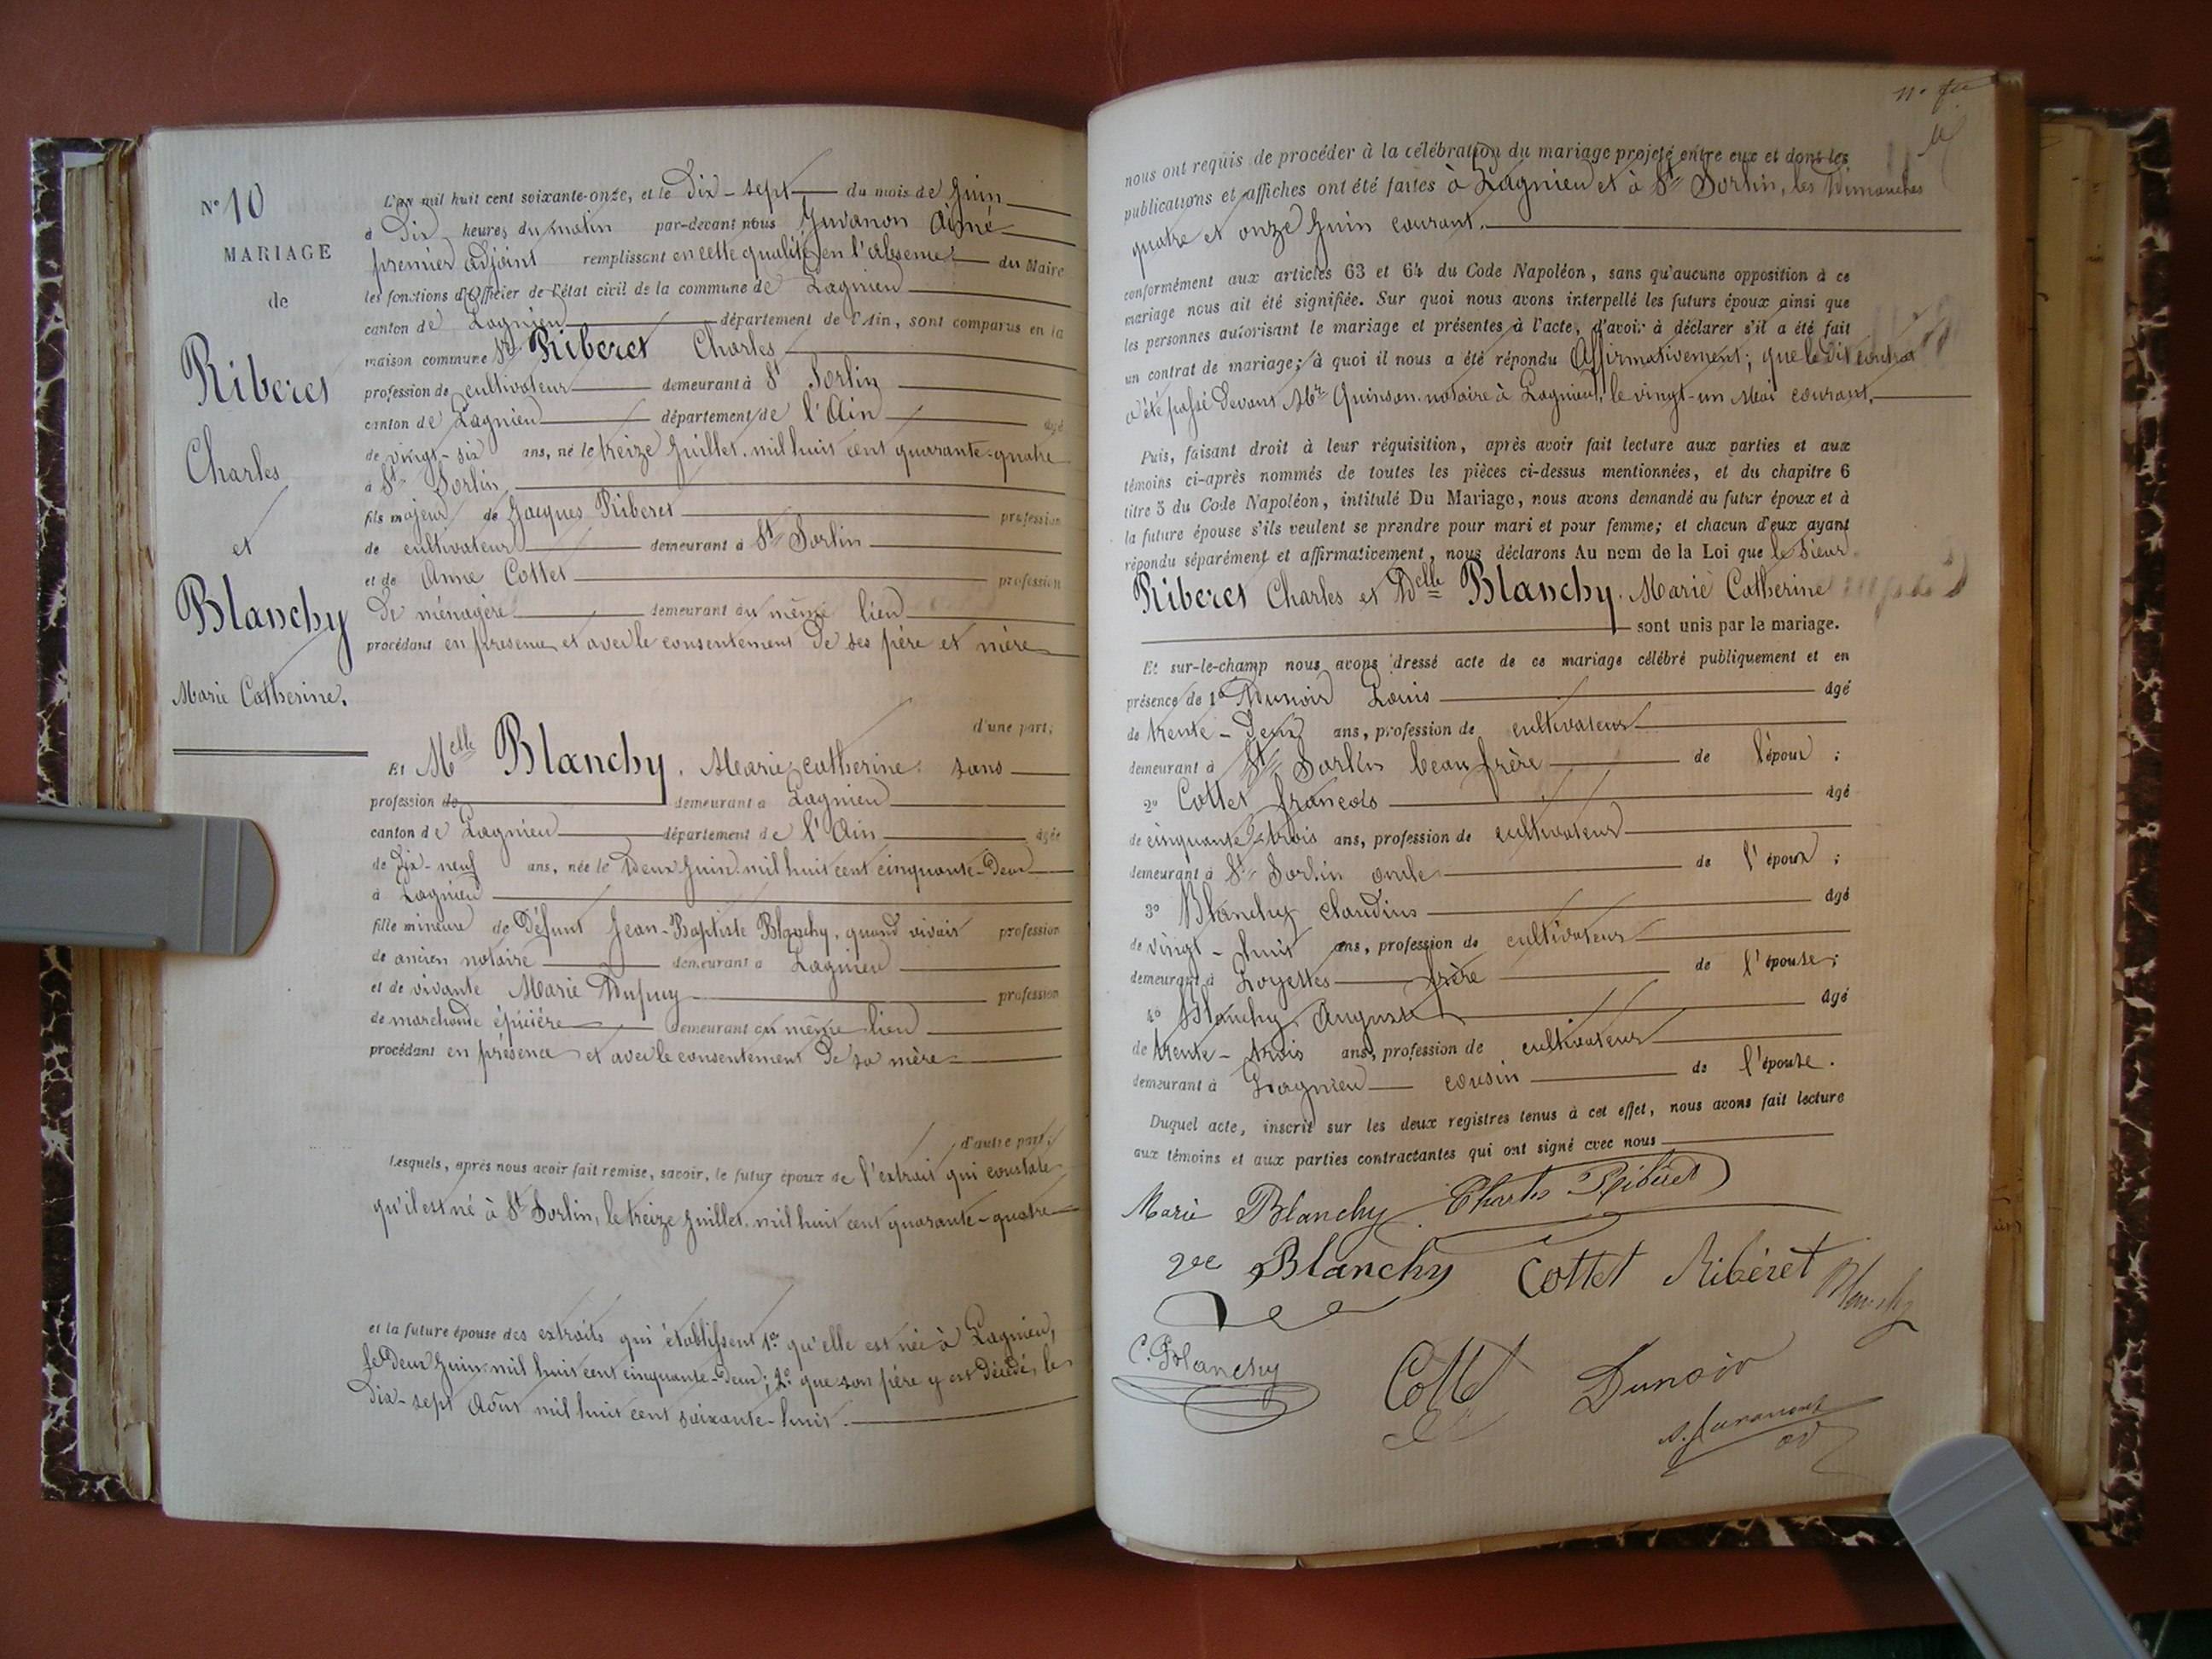 N° 10
MARIAGE
de
Riberet
Charles
et
Blanchy
Marie Catherine.
L'an mil huit cent soixante-onze, et le Dix-sept du mois de Juin
à Dix heures du matin par-devant nous Juvanon Aimé
premier adjoint remplissant en cette qualité, en l'absence du Maire
les fonctions d'Officier de l'état civil de la commune de Lagnieu
canton de Lagnieu département de l'Ain, sont comparus en la
maison commune Sr Riberet Charles
profession de cultivateur demeurant à St Sorlin
canton de Lagnieu département de l'Ain âgé
de vingt-six ans, né le treize Juillet mil huit cent quarante-quatre
à St Sorlin
fils majeur de Jacques Riberet profession
de cultivateur demeurant à St Sorlin
et de Anne Cottet profession
de ménagère demeurant au même lieu
procédant en présence et avec le consentement de ses père et mère
d'une part;
Et Melle Blanchy, Marie Catherine, sans
profession de demeurant à Lagnieu
canton de Lagnieu département de l'Ain âgée
de Dix-neuf ans, née le Deux Juin mil huit cent cinquante-Deux
à Lagnieu
fille mineure de Défunt Jean-Baptiste Blanchy, quand vivait profession
de ancien notaire demeurant à Lagnieu
et de vivante Marie Dupuy profession
de marchande épicière demeurant au même lieu
procédant en présence et avec le consentement de sa mère
d'autre part;
Lesquels, après nous avoir fait remise, savoir, le futur époux de l'extrait qui constate
qu'il est né à St Sorlin, le treize Juillet mil huit cent quarante-quatre
et la future épouse des extraits qui établissent 1° qu'elle est née à Lagnieu,
le Deux Juin mil huit cent cinquante-Deux; 2° que son père y est Décédé, le
Dix-sept Août mil huit cent soixante-huit.
nous ont requis de procéder à la célébration du mariage projeté entre eux et dont les
publications et affiches ont été faites à Lagnieu et à St Sorlin, les Dimanches
quatre et onze Juin courant.
conformément aux articles 63 et 64 du Code Napoléon, sans qu'aucune opposition à ce
mariage nous ait été signifiée. Sur quoi nous avons interpellé les futurs époux ainsi que
les personnes autorisant le mariage et présentes à l'acte, d'avoir à déclarer s'il a été fait
un contrat de mariage; à quoi il nous a été répondu Affirmativement; que le Dit contrat
a été passé Devant Mr Quinson notaire à Lagnieu, le vingt-un Mai courant.
Puis, faisant droit à leur réquisition, après avoir fait lecture aux parties et aux
témoins ci-après nommés de toutes les pièces ci-dessus mentionnées, et du chapitre 6
titre 5 du Code Napoléon, intitulé Du Mariage, nous avons demandé au futur époux et à
la future épouse s'ils veulent se prendre pour mari et pour femme; et chacun d'eux ayant
répondu séparément et affirmativement, nous déclarons Au nom de la Loi que le Sieur
Riberet Charles et Delle Blanchy, Marie Catherine
sont unis par le mariage.
Et sur-le-champ nous avons dressé acte de ce mariage célébré publiquement et en
présence de 1° Dunoir Louis âgé
de trente-Deux ans, profession de cultivateur
demeurant à St Sorlin beau frère de l'époux;
2° Cottet françois âgé
de cinquante-trois ans, profession de cultivateur
demeurant à St Sorlin oncle de l'époux;
3° Blanchy Claudius âgé
de vingt-huit ans, profession de cultivateur
demeurant à Loyettes frère de l'épouse;
4° Blanchy Auguste âgé
de trente-trois ans, profession de cultivateur
demeurant à Lagnieu cousin de l'épouse.
Duquel acte, inscrit sur les deux registres tenus à cet effet, nous avons fait lecture
aux témoins et aux parties contractantes qui ont signé avec nous
Marie Blanchy Charles Ribéret
Vve Blanchy Cottet Ribéret Blanchy
C. Blanchy Cottet Dunoir
A. Juvanon